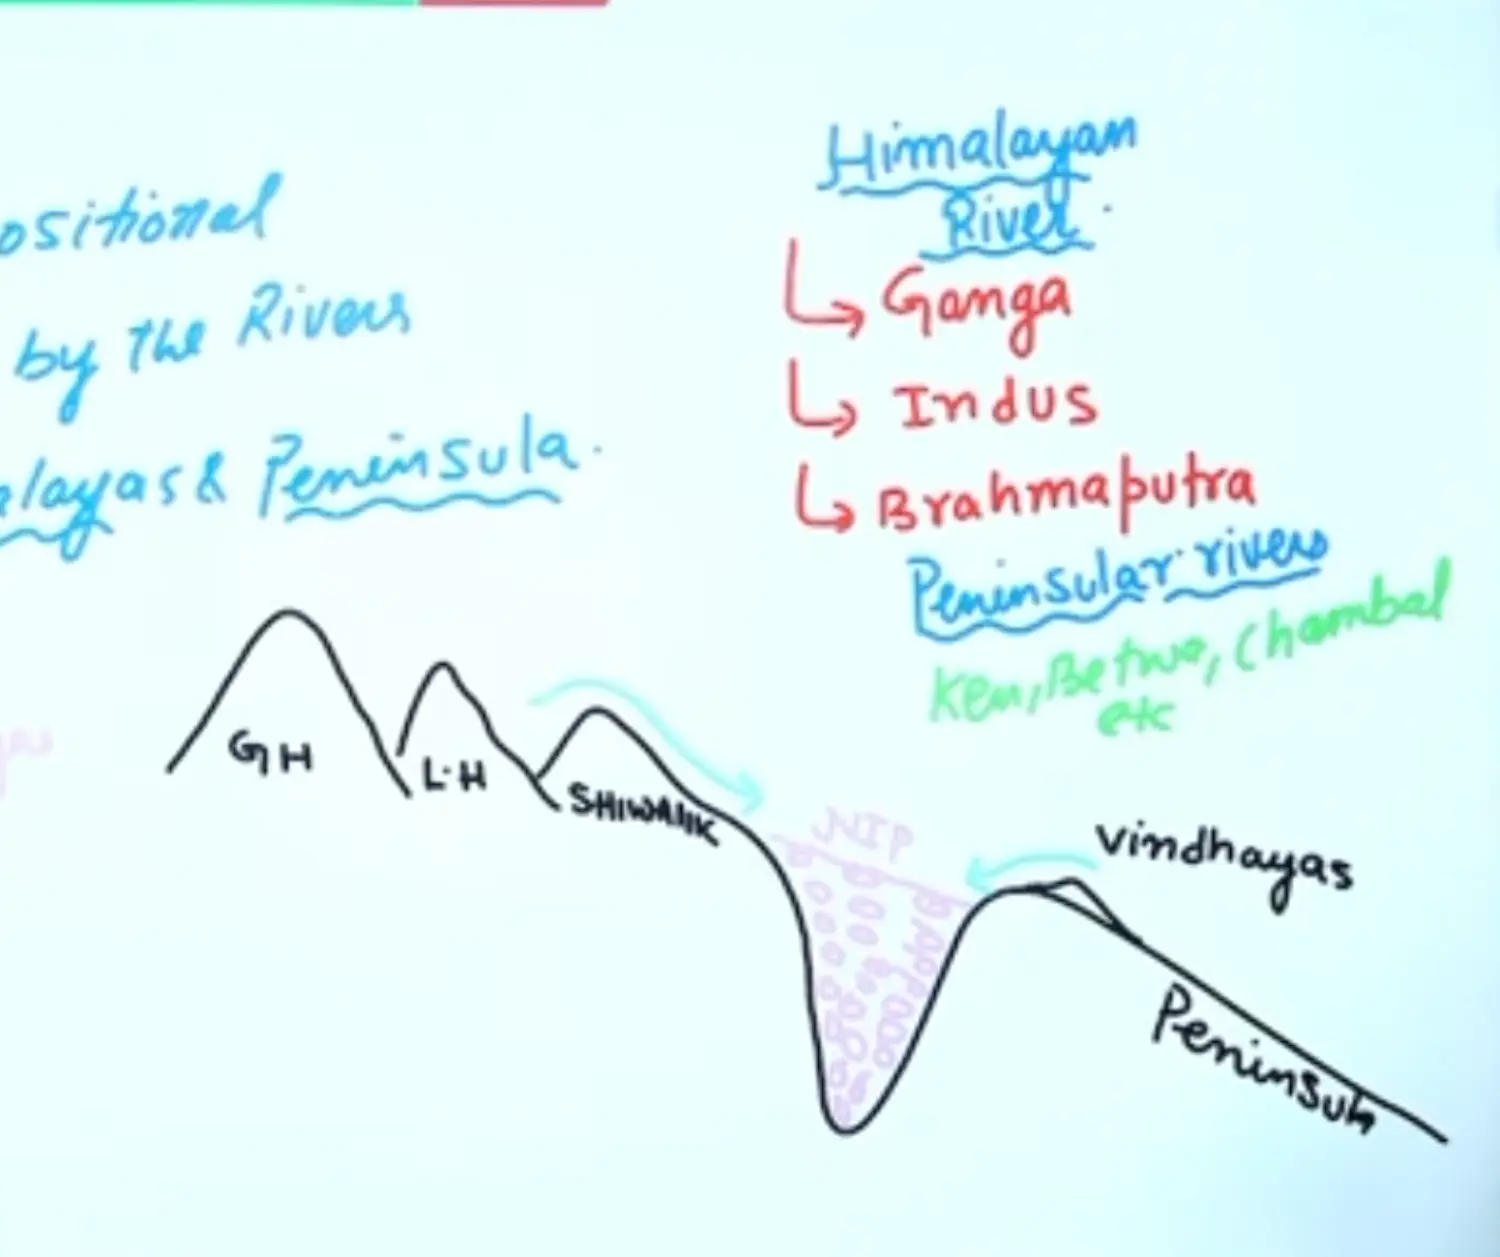 Himalayan
River.
ositional
by the Rivers
Ganga
Indus
elayas & Peninsula.
Brahmaputra
Peninsular rivers
Ken, Betwa, Chambal
etc
GH
L.H
SHIWALIK
NIP
Vindhayas
Peninsula